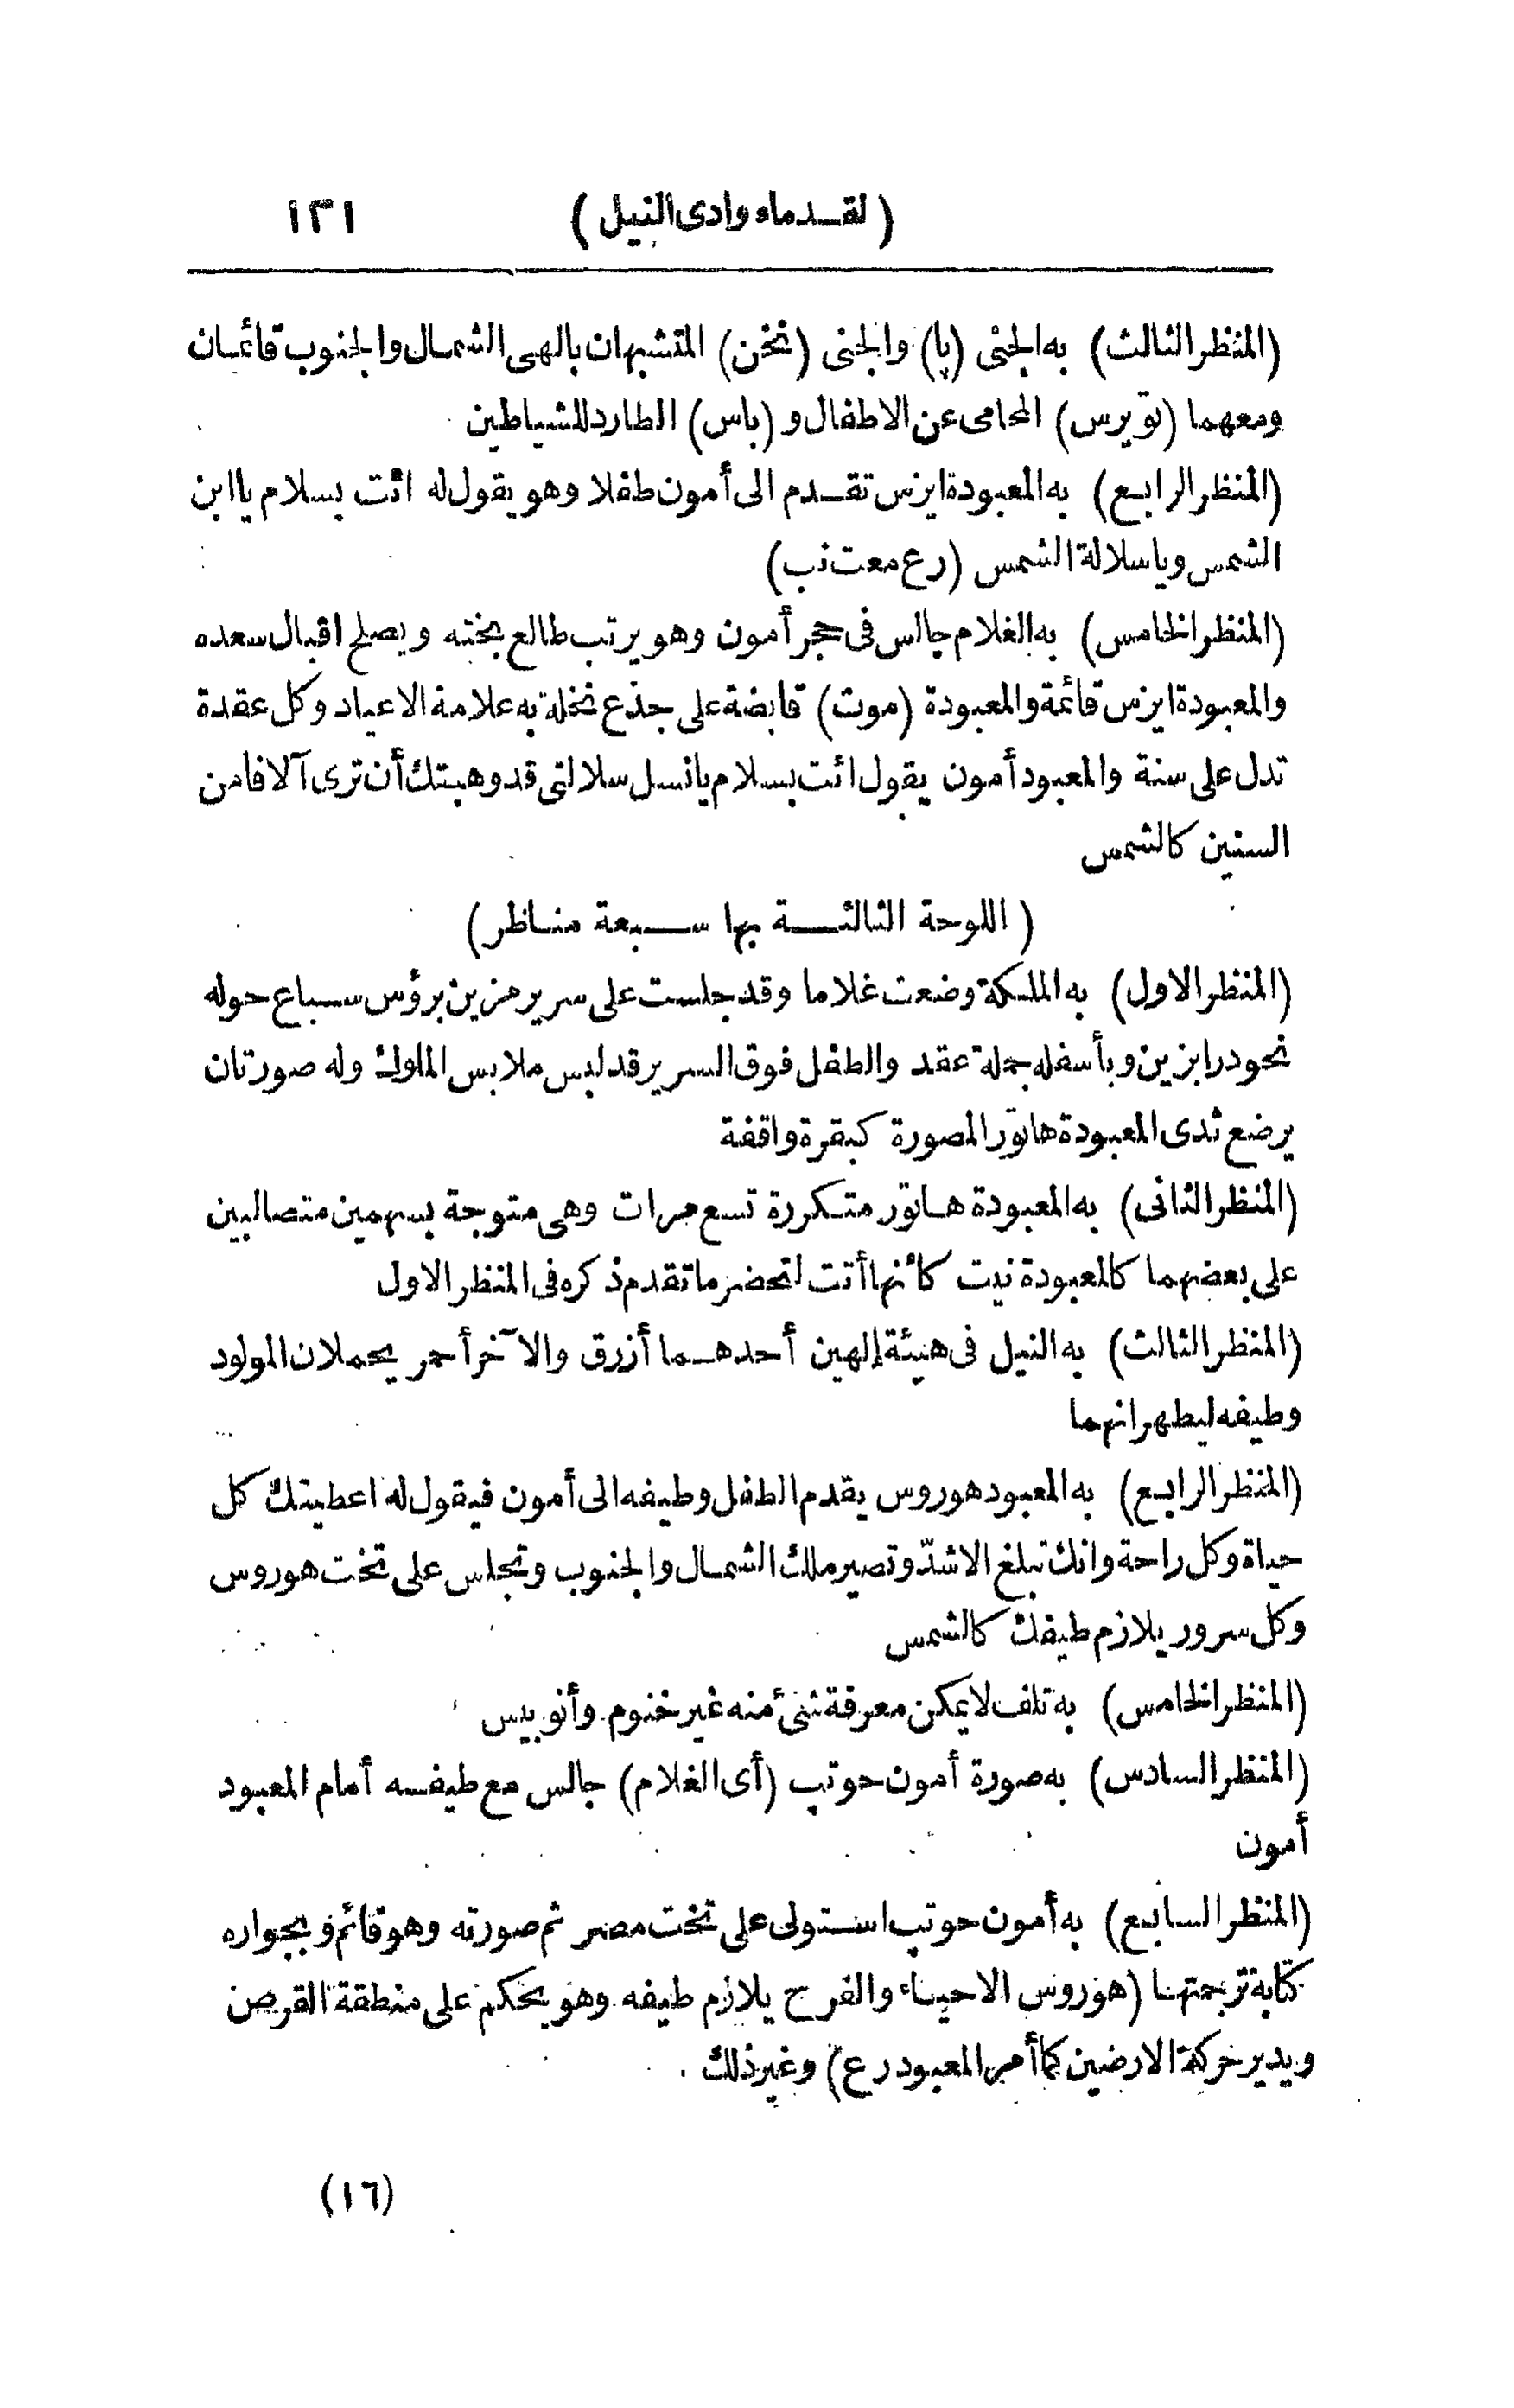 (لقدماء وادى النيل) ١٢١
(المنظر الثالث) به الجنى (پا) والجنى (نخن) المتشبهان بالهى الشمال والجنوب قائمان
ومعهما (تويرس) المحامى عن الاطفال و (باس) الطارد للشياطين
(المنظر الرابع) به المعبودة ايزس تقدم الى أمون طفلا وهو يقول له ائت بسلام يا ابن
الشمس ويا سلالة الشمس (رع معت نب)
(المنظر الخامس) به الغلام جالس فى حجر أمون وهو يرتب طالع بخته ويصلح اقبال سعده
والمعبودة ايزس قائمة والمعبودة (موت) قابضة على جذع نخلة به علامة الاعياد وكل عقدة
تدل على سنة والمعبود أمون يقول ائت بسلام يا نسل سلالتى قد وهبتك أن ترى آلافا من
السنين كالشمس
(اللوحة الثالثة بها سبعة مناظر)
(المنظر الاول) به الملكة وضعت غلاما وقد جلست على سرير مزين برؤس سباع حوله
نحو درابزين وبأسفله جملة عقد والطفل فوق السرير قد لبس ملابس الملوك وله صورتان
يرضع ثدى المعبودة هاتور المصورة كبقرة واقفة
(المنظر الثانى) به المعبودة هاتور متكررة تسع مرات وهى متوجة بسهمين متصالبين
على بعضهما كالمعبودة نيت كأنها أتت لتحضر ما تقدم ذكره فى المنظر الاول
(المنظر الثالث) به النيل فى هيئة إلهين أحدهما أزرق والآخر أحمر يحملان المولود
وطيفه ليطهرانهما
(المنظر الرابع) به المعبود هوروس يقدم الطفل وطيفه الى أمون فيقول له اعطيتك كل
حياة وكل راحة وانك تبلغ الاشدّ وتصير ملك الشمال والجنوب وتجلس على تخت هوروس
وكل سرور يلازم طيفك كالشمس
(المنظر الخامس) به تلف لا يمكن معرفة شئ منه غير خنوم وأنوبيس
(المنظر السادس) به صورة أمون حوتپ (أى الغلام) جالس مع طيفه أمام المعبود
أمون
(المنظر السابع) به أمون حوتپ استولى على تخت مصر ثم صورته وهو قائم وبجواره
كتابة ترجمتها (هوروس الاحياء والفرح يلازم طيفه وهو يحكم على منطقة القرص
ويدير حركة الارضين كما أمر المعبود رع) وغير ذلك .
(١٦)